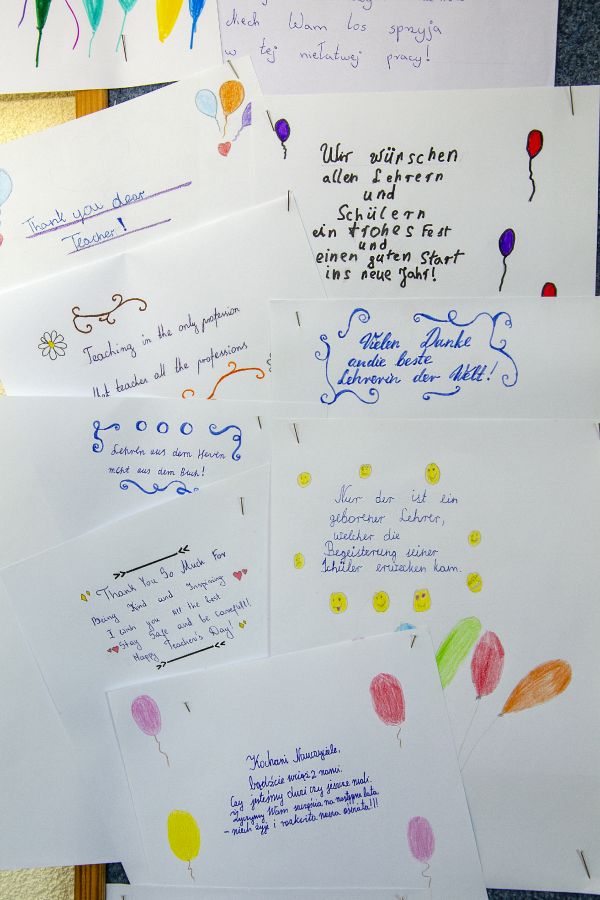 Niech Wam los sprzyja
w tej niełatwej pracy!
Thank you dear
Teacher!
Wir wünschen
allen Lehrern
und
Schülern
ein frohes Fest
und
einen guten Start
ins neue Jahr!
Teaching in the only profession
that teacher all the professions
Vielen Danke
andie beste
Lehrerin der Welt!
Lehren aus dem Herzen
nicht aus dem Buch!
Nur der ist ein
geborener Lehrer,
welcher die
Begeisterung seiner
Schüler erwecken kam.
Thank You So Much For
Being Kind and Inspiring
I wish you all the best
Stay Safe and be careful!!!
Happy Teacher's Day!
Kochani Nauczyciele,
bądźcie wciąż z nami.
Czy jesteśmy duzi czy jeszcze mali.
Życzymy Wam szczęścia na następne lata
- niech żyje i rozkwita nasza oświata!!!